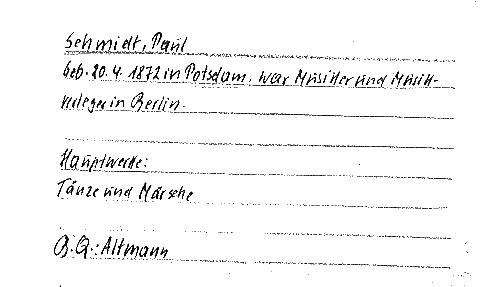 Schmidt, Paul
Geb. 20.4.1872 in Potsdam, war Musiker und Musik-
verleger in Berlin.
Hauptwerke:
Tänze und Märsche
B.Q.: Altmann